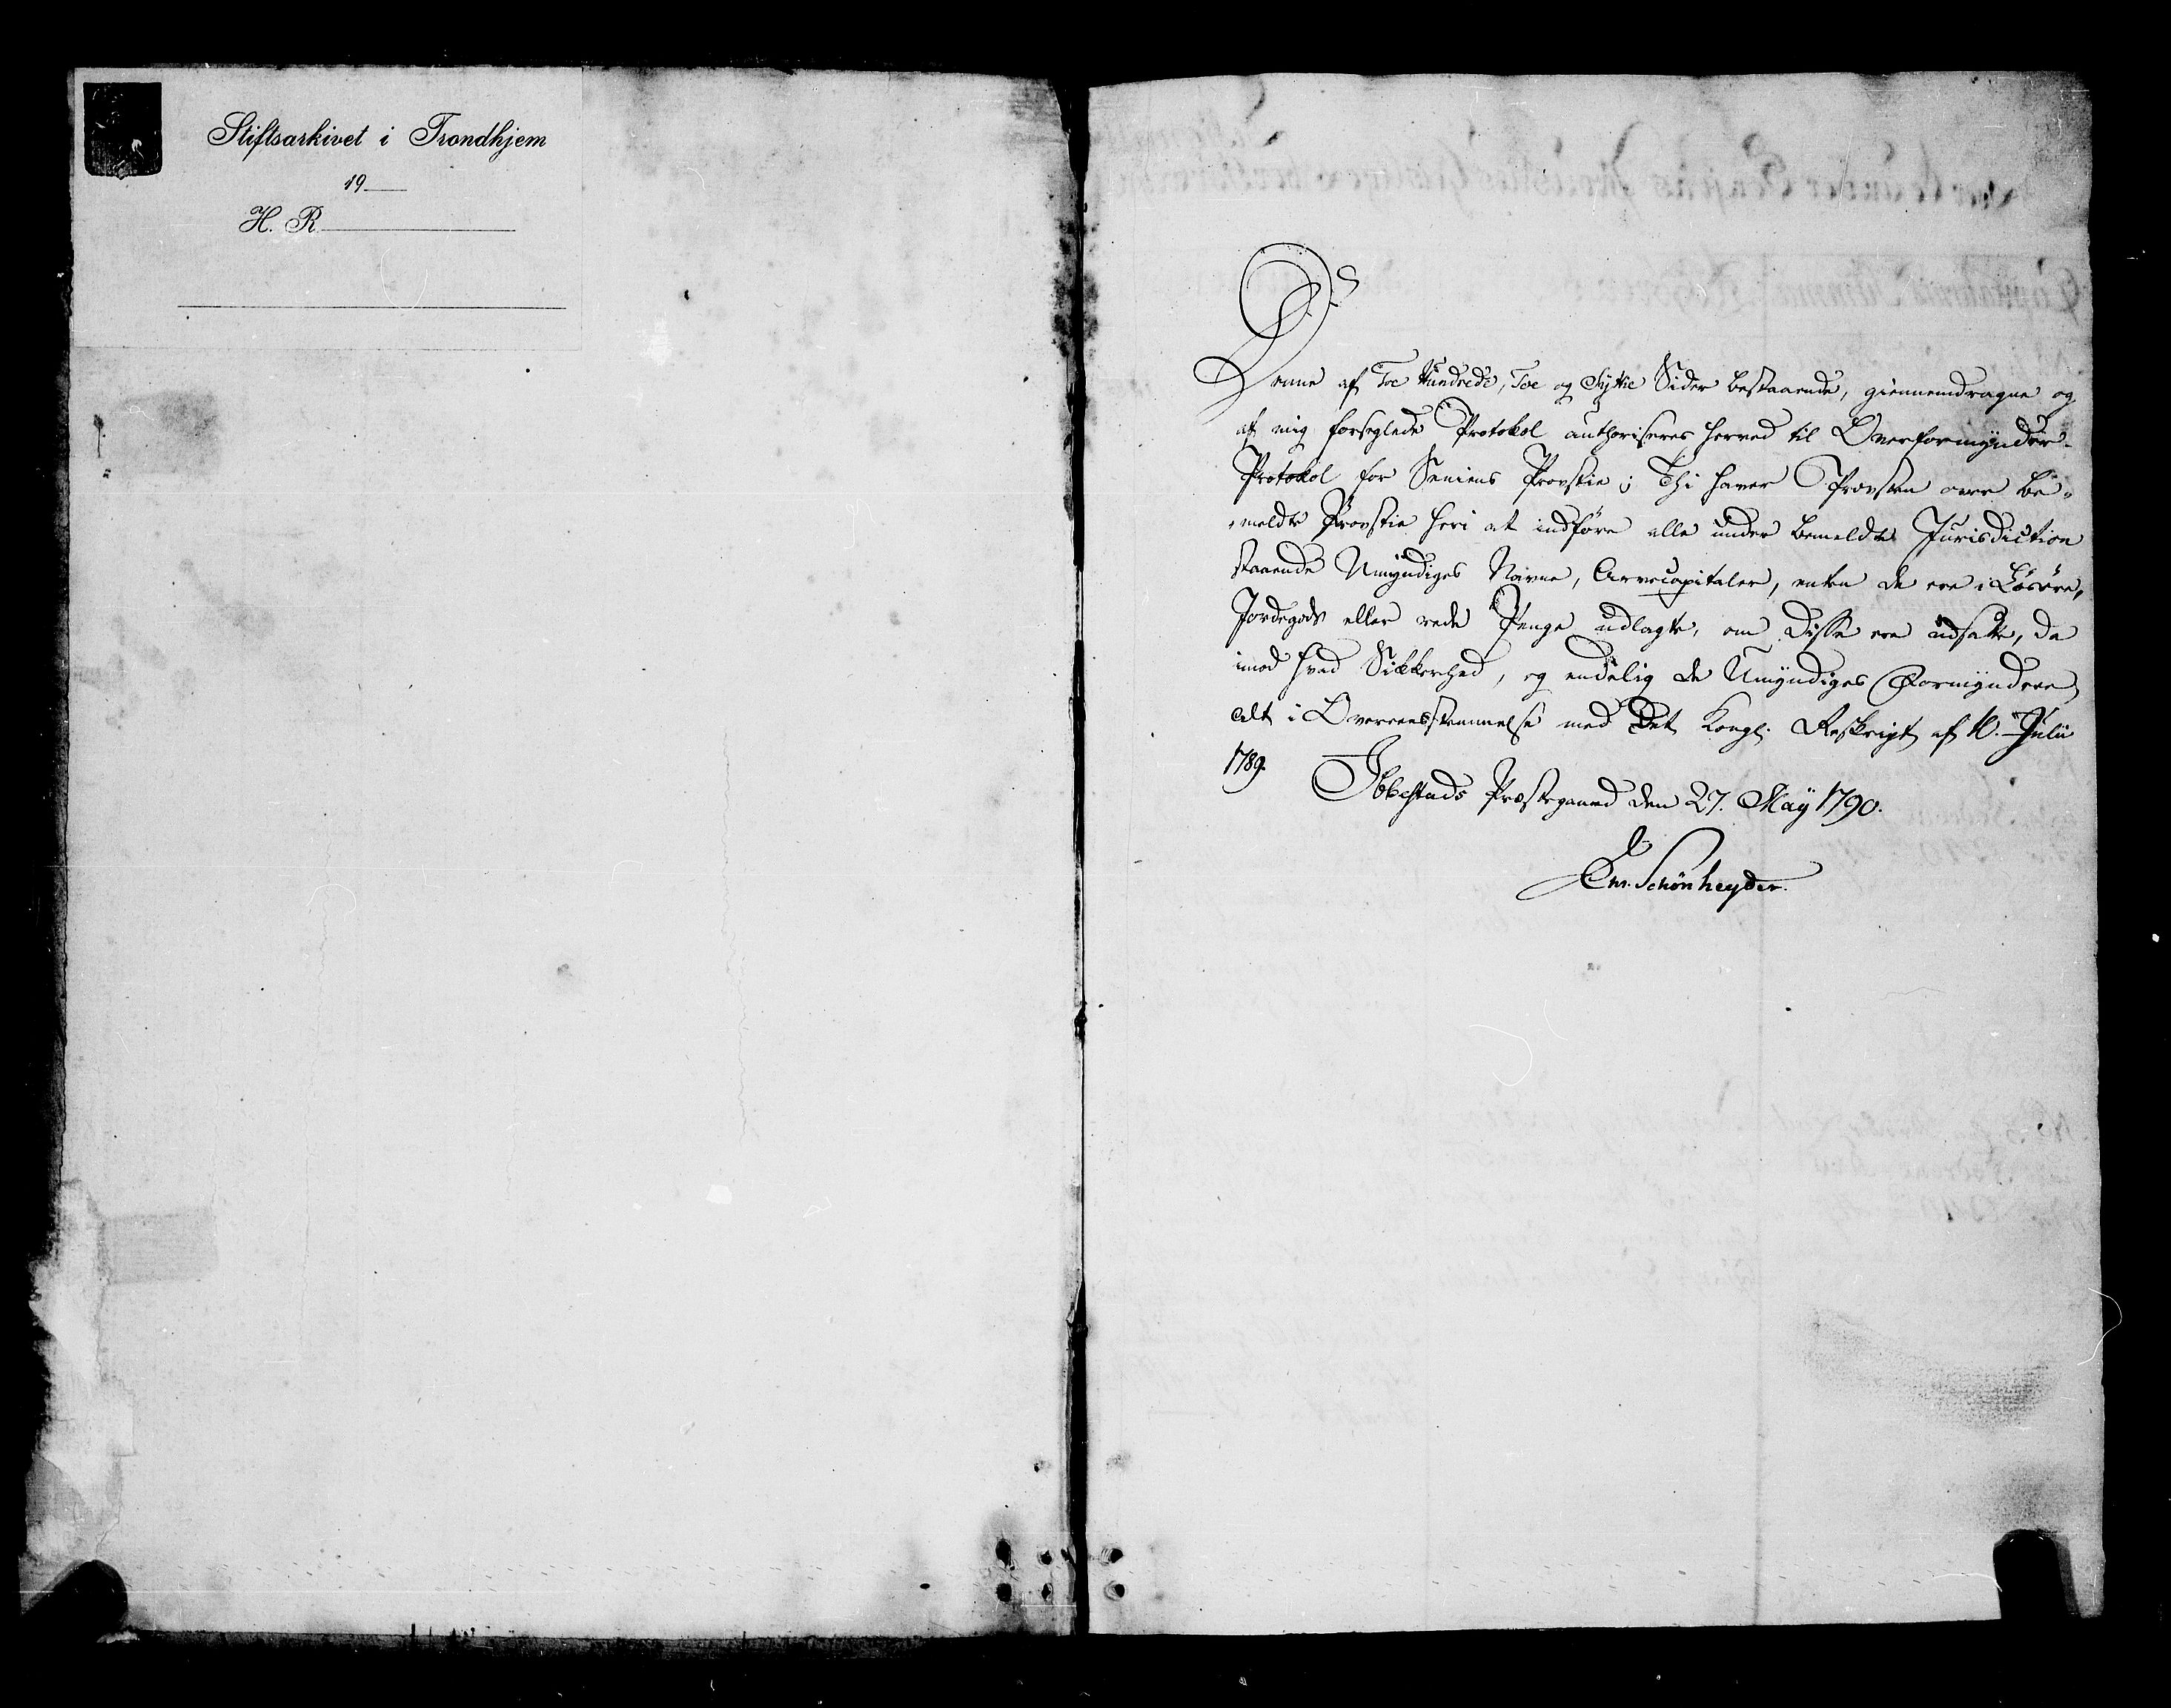 Stiftsarkivet i Trondhjem
19
H. R.
Denne af Toe Hundrede, Toe og Sytie Sider bestaaende, giennemdragne og
af mig forseglede Protokol authoriseres herved til Overformynder-
Protokol for Seniens Provstie; Thi haver Provsten over be-
meldte Provstie heri at indføre alle under bemeldte Jurisdiction
staaende Umyndiges Navne, Arvecapitaler, enten de ere i Løsøre,
Jordegods eller rede Penge udlagte, om disse ere udsatte, da
imod hvad Sikkerhed, og endelig de Umyndiges Formyndere,
alt i Overeensstemmelse med Det Kongl. Reskript af 10. Julii
1789. Ibbestads Præstegaard den 27. Maÿ 1790.
Schønheyder.